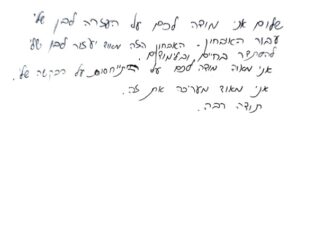 שלום אני מודה לכם על העזרה לבן שלי
עבור האבחון. האבחון הזה מאוד יעזור לבן שלי
להסתדר בחיים ובלימודים.
אני מאוד מודה לכם על ההתייחסות על הבקשה שלי.
אני מאוד מעריכה את זה.
תודה רבה.